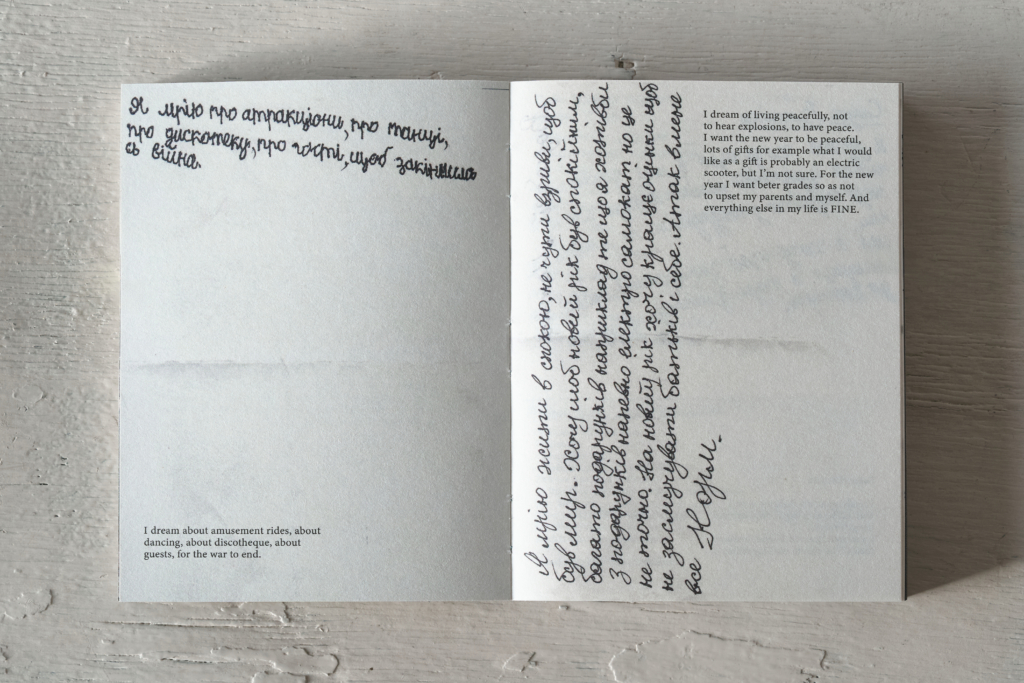 Я мрію про атракціони, про танці,
про дискотеку, про гості, щоб закінчила
сь війна.
I dream about amusement rides, about
dancing, about discotheque, about
guests, for the war to end.
Я мрію жити в спокою, не чути взриви, щоб
був мир. Хочу щоб новий рік був спокійним,
багато подарунків наприклад те що я хотів би
З подарунків напевно електро самокат но це
не точно. На новий рік хочу кращє оцінки щоб
не засмучувати батьків і себе. А так в мене
все Норм.
I dream of living peacefully, not
to hear explosions, to have peace.
I want the new year to be peaceful,
lots of gifts for example what I would
like as a gift is probably an electric
scooter, but I'm not sure. For the new
year I want beter grades so as not
to upset my parents and myself. And
everything else in my life is FINE.